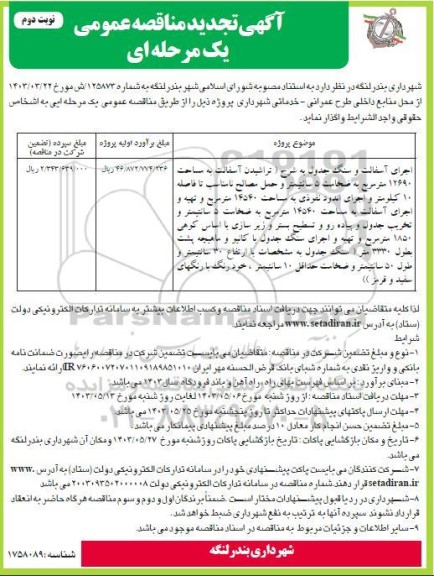 آگهی تجدید مناقصه عمومی
یک مرحله ای
نوبت دوم
شهرداری بندر لنگه در نظر دارد به استناد مصوبه شورای اسلامی شهر بندر لنگه به شماره ۱۲۵۸۷۳/ش مورخ ۱۴۰۳/۰۳/۲۲
از محل منابع داخلی طرح عمرانی - خدماتی شهرداری پروژه ذیل را از طریق مناقصه عمومی یک مرحله ایی به اشخاص
حقوقی واجد الشرایط واگذار نماید.
موضوع پروژه
مبلغ برآورد اولیه پروژه
مبلغ سپرده (تضمین شرکت در مناقصه)
اجرای آسفالت و سنگ جدول به شرح ( تراشیدن آسفالت به مساحت
۱۲۶۹۰ مترمربع به ضخامت ۵ سانتیمتر و حمل مصالح نامناسب تا فاصله
۱۰ کیلومتر و اجرای اندود نفوذی به مساحت ۱۴۵۴۰ مترمربع و تهیه و
اجرای آسفالت به مساحت ۱۴۵۴۰ مترمربع به ضخامت ۵ سانتیمتر و
تخریب جدول و پیاده رو و تسطیح بستر و زیر سازی با اساس کوهی
۱۸۵۰ مترمربع و تهیه و اجرای سنگ جدول با کانیو و ماهیچه پشت
بطول ۳۳۳۰ متر ( سنگ جدول به مشخصات با ارتفاع ۳۰ سانتیمتر و
طول ۵۰ سانتیمتر و ضخامت حداقل ۱۰ سانتیمتر ، خود رنگ با رنگهای
سفید و قرمز ))
۴۶/۸۷۲/۷۷۴/۴۳۶ ریال
۲/۳۴۳/۶۳۹/۰۰۰ ریال
لذا کلیه متقاضیان می توانند جهت دریافت اسناد مناقصه و کسب اطلاعات بیشتر به سامانه تدارکات الکترونیکی دولت
(ستاد) به آدرس www.setadiran.ir مراجعه نمایند
۱-نوع و مبلغ تضمین شرکت در مناقصه : متقاضیان می بایست تضمین شرکت در مناقصه را بصورت ضمانت نامه
بانکی و واریز نقدی به شماره شبای بانک قرض الحسنه مهر ایران IR۷۶۰۶۰۰۷۴۰۷۰۱۱۰۹۱۸۹۸۵۱۰۱۰ ارائه نمایند.
۲-مبنای برآورد : بر اساس فهرست بهای راه، راه آهن و باند فرودگاه سال ۱۴۰۳ می باشد .
۳-مهلت دریافت اسناد مناقصه : از روز شنبه مورخ ۱۴۰۳/۰۵/۰۶ لغایت روز شنبه مورخ ۱۴۰۳/۰۵/۱۳
۴-مهلت ارسال پاکتهای پیشنهادات حداکثر تا روز پنجشنبه مورخ ۱۴۰۳/۰۵/۲۵ می باشد
۵-مبلغ تضمین حسن انجام کار معادل ۱۰ درصد مبلغ پیشنهادی پیمانکار می باشد
۶-تاریخ و مکان بازگشایی پاکات : تاریخ بازگشایی پاکات روز شنبه مورخ ۱۴۰۳/۰۵/۲۷ و مکان آن شهرداری بندر لنگه
می باشد.
۷-شرکت کنندگان می بایست پاکت پیشنهادی خود را در سامانه تدارکات الکترونیکی دولت (ستاد) به آدرس www.
setadiran.ir قرار دهند. شماره مناقصه در سامانه تدارکات الکترونیکی دولت ۲۰۰۳۰۹۳۵۰۲۰۰۰۰۰۸ می باشد
۸-شهرداری در رد یا قبول پیشنهادات مختار است. ضمناً برندگان اول و دوم و سوم مناقصه هرگاه حاضر به انعقاد
قرارداد نشوند سپرده آنها به ترتیب به نفع شهرداری ضبط خواهد شد.
۹-سایر اطلاعات و جزئیات مربوط به مناقصه در اسناد مناقصه موجود می باشد
شهرداری بندر لنگه
شناسه: ۱۷۵۸۰۸۹